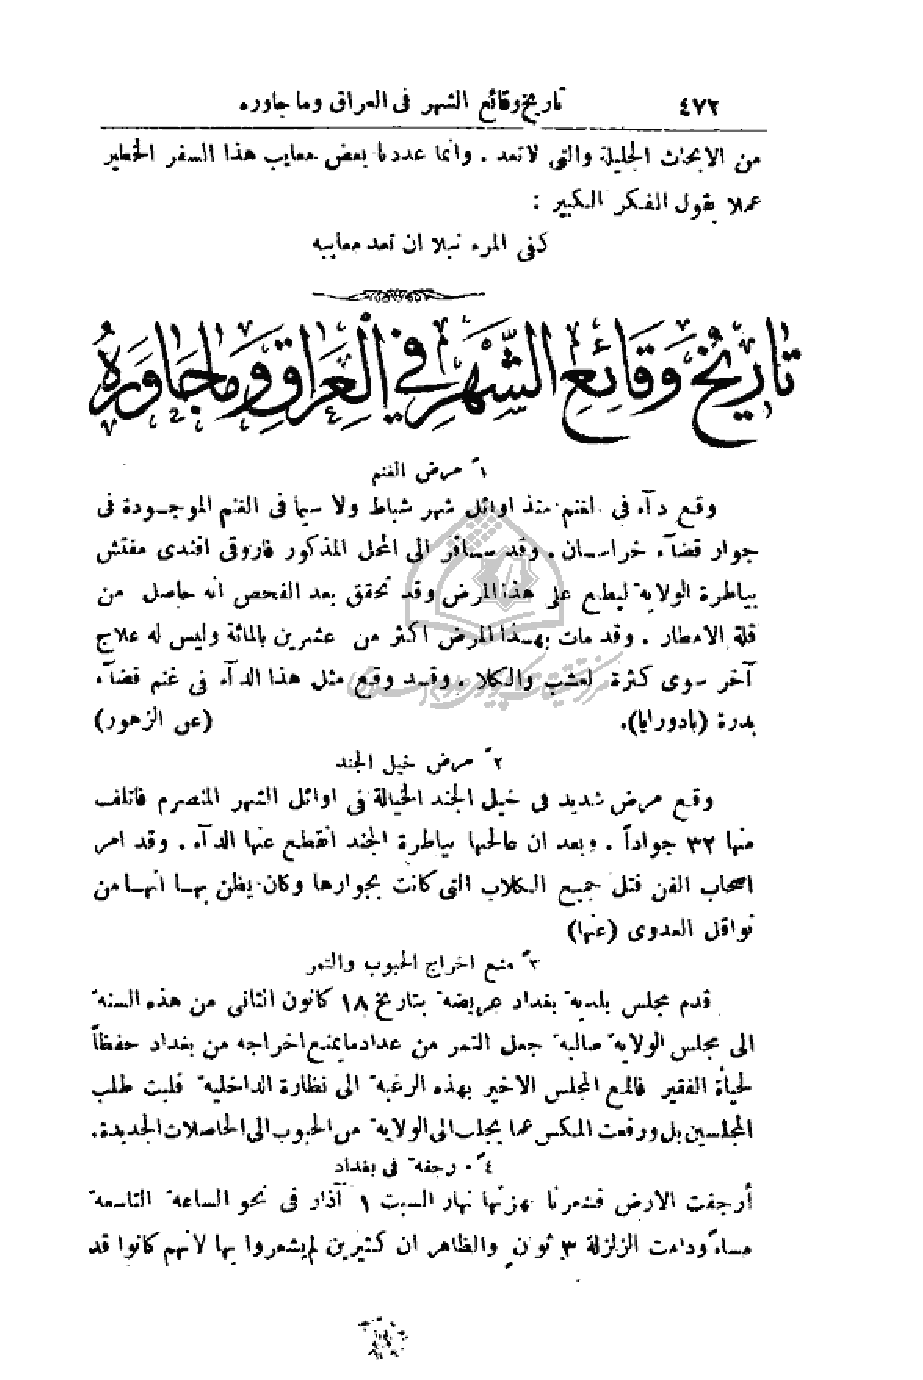 ٤٧٢ تاريخ وقائع الشهر في العراق وما جاوره
من الابحاث الجليلة والتي لا تعد . وانما عددنا بعض معايب هذا السفر الخطير
عملا بقول المفكر الكبير :
كفى المرء نبلا ان تعد معايبه
تاريخ وقائع الشهر في العراق وما جاوره
١ً مرض الغنم
وقع دآء في لغنم منذ اوائل شهر شباط ولا سيما في الغنم الموجودة في
جوار قضآء خراسان . وقد سافر الى المحل المذكور فاروقي افندي مفتش
بياطرة الولاية ليطلع على هذا المرض وقد تحقق بعد الفحص انه حاصل من
قلة الامطار . وقد مات بهذا المرض اكثر من عشرين بالمائة وليس له علاج
آخر سوى كثرة لعشب والكلا . وقد وقع مثل هذا الدآء في غنم قضآء
بدرة (بادورايا). (عن الزهور)
٢ً مرض خيل الجند
وقع مرض شديد في خيل الجند الخيالة في اوائل الشهر المنصرم فاتلف
منها ٣٢ جواداً . وبعد ان عالجها بياطرة الجند انقطع عنها الدآء . وقد امر
اصحاب الفن قتل جميع الكلاب التي كانت بجوارها وكان يظن بها انها من
نواقل العدوى (عنها)
٣ً منع اخراج الحبوب والتمر
قدم مجلس بلدية بغداد عريضة بتاريخ ١٨ كانون الثاني من هذه السنة
الى مجلس الولاية طالبة جعل التمر من عداد ما يمنع اخراجه من بغداد حفظاً
لحياة الفقير فالمع المجلس الاخير بهذه الرغبة الى نظارة الداخلية فلبت طلب
المجلسين بل ورفعت المكس عما يجلب الى الولاية من الحبوب الى الحاصلات الجديدة.
٤ً . رجفة في بغداد
أرجفت الارض فشعرنا بهزتها نهار السبت ١ آذار في نحو الساعة التاسعة
مساءً ودامت الزلزلة ٣ ثوانٍ والظاهر ان كثيرين لم يشعروا بها لانهم كانوا قد